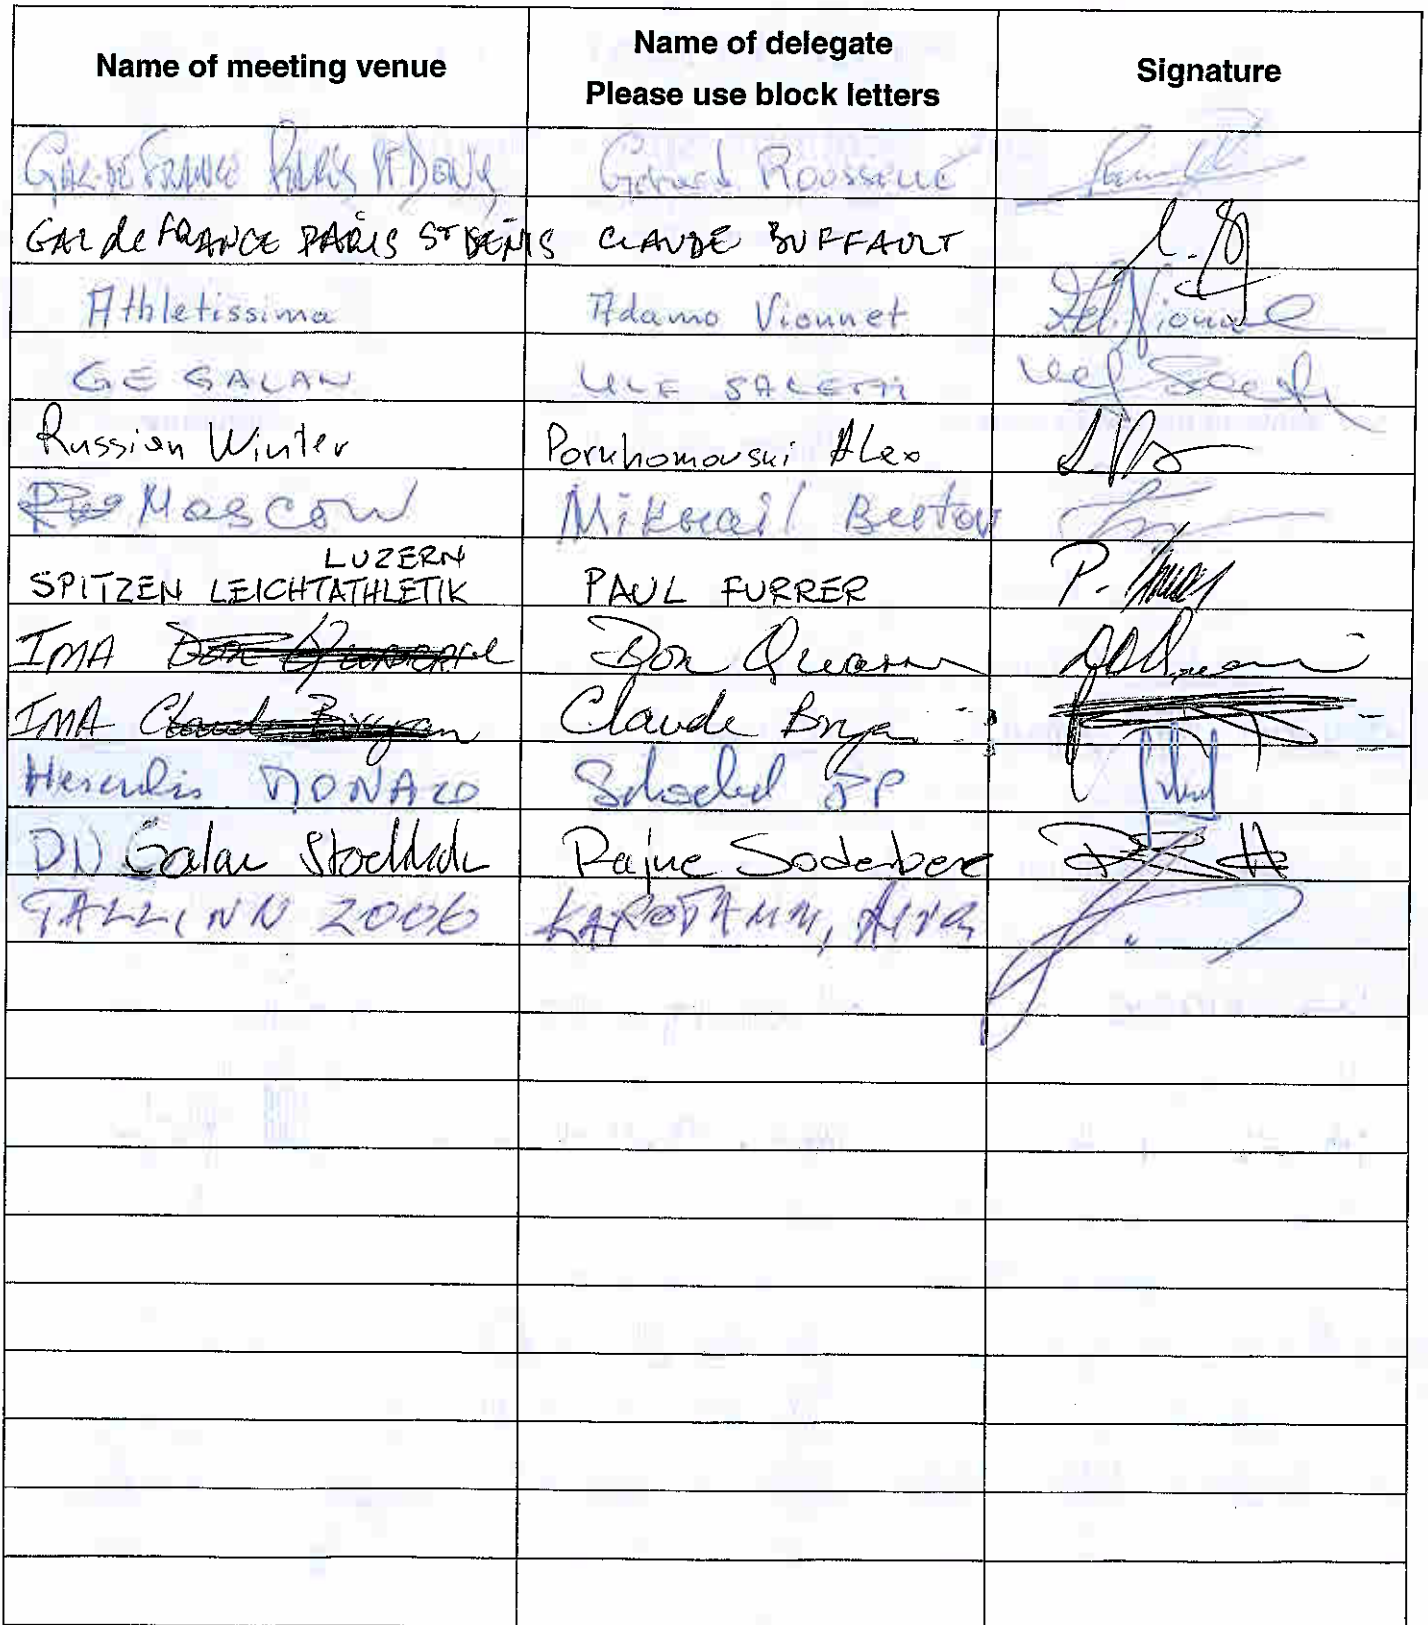 Name of meeting venue
Name of delegate
Please use block letters
Signature
GAZ DE FRANCE PARIS ST DENIS Gérard Rousselle
GAZ de FRANCE PARIS ST DENIS CLAUDE BUFFAULT
Athletissima Adamo Vionnet Ad. Vionnet
GE GALAN ULF SALETTI
Russian Winter Porkhomovski Alex
MOSCOW Mikhail Butov
LUZERN
SPITZEN LEICHTATHLETIK PAUL FURRER P.
IMA Don Quarrie Don Quarrie
IMA Claude Bryan Claude Bryan
Herculis MONACO Schoebel JP
DN Galan Stockholm Rajne Soderberg
TALLINN 2006 KAROTAMM,